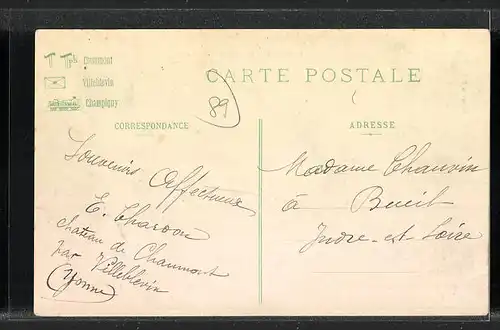 TTph Chaumont
Villeblevin
Champigny
CARTE POSTALE
89
CORRESPONDANCE
ADRESSE
Souvenirs Affectueux
E. Chardon
château de Chaumont
par Villeblevin
(Yonne)
Madame Chauvin
à Bueil
Indre-et-Loire